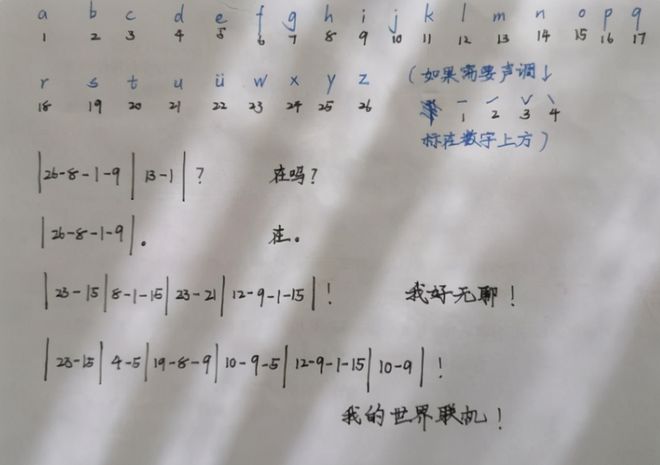 a b c d e f g h i j k l m n o p q
1 2 3 4 5 6 7 8 9 10 11 12 13 14 15 16 17
r s t u ü w x y z
18 19 20 21 22 23 24 25 26
(如果需要声调↓
— ˊ ˇ ˋ
1 2 3 4
标在数字上方)
|26-8-1-9|13-1|? 在吗?
|26-8-1-9|。 在。
|23-15|8-1-15|23-21|12-9-1-15|! 我好无聊!
|23-15|4-5|19-8-9|10-9-5|12-9-1-15|10-9|!
我的世界联机!